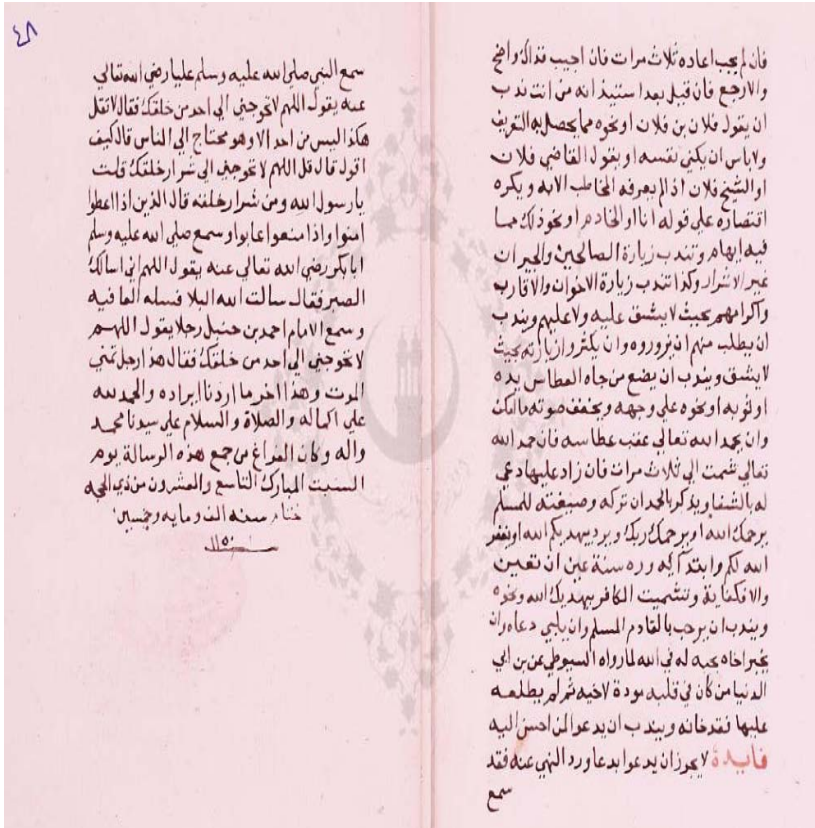 فان لم يجب اعاده ثلاث مرات فان اجيب فذاك واضح
والا رجع فان قيل بعد استيذانه من انت ندب
ان يقول فلان بن فلان او نحوه مما يحصل به التعريف
ولا باس ان يكني نفسه او يقول القاضي فلان
او الشيخ فلان اذا لم يعرفه المخاطب الا به ويكره
اقتصاره علي قوله انا او الخادم او نحو ذلك مما
فيه ابهام وتندب زيارة الصالحين والجيران
غير الاشرار وكذا تندب زيارة الاخوان والاقارب
واكرامهم بحيث لا يشق عليه ولا عليهم ويندب
ان يطلب منهم ان يزوروه وان يكثروا زيارته بحيث
لا يشق ويندب ان يضع من جاه العطاس يده
او ثوبه او نحوه علي وجهه ويخفض صوته ما امكن
وان يحمد الله تعالي عقب عطاسه فان حمد الله
تعالي شمت الي ثلاث مرات فان زاد عليها دعي
له بالشفا ويذكر بالحمد ان تركه وصيغته للمسلم
يرحمك الله او يرحمك ربك ويرد بيهديكم الله او يغفر
الله لكم وابتداه ورده سنة عين ان تعين
والا فكفاية وتشميت الكافر بيهديك الله ونحوه
ويندب ان يرحب بالقادم المسلم وان يلبي دعاه وان
يخبر اخاه بحبه له في الله لما رواه السيوطي عن بن ابي
الدنيا من كان في قلبه مودة لاخيه ثم لم يطلعه
عليها فقد خانه ويندب ان يدعو لمن احسن اليه
فايدة لا يجوز ان يدعو ابدعا ورد النهي عنه فقد
سمع
٤٨
سمع النبي صلي الله عليه وسلم عليا رضي الله تعالي
عنه يقول اللهم لا تحوجني الي احد من خلقك فقال لا تقل
هكذا ليس من احد الا وهو محتاج الي الناس قال كيف
اقول قال قل اللهم لا تحوجني الي شرار خلقك قلت
يا رسول الله ومن شرار خلقه قال الذين اذا اعطوا
امنوا واذا منعوا عابوا وسمع صلي الله عليه وسلم
ابا بكر رضي الله تعالي عنه يقول اللهم اني اسالك
الصبر فقال سالت الله البلا فسله العافيه
وسمع الامام احمد بن حنبل رجلا يقول اللهم
لا تحوجني الي احد من خلقك فقال هذا رجل تمني
الموت وهذا اخر ما اردنا ايراده والحمد لله
علي اكماله والصلاة والسلام علي سيدنا محمد
واله وكان الفراغ من جمع هذه الرسالة يوم
السبت المبارك التاسع والعشرون من ذي الحجه
ختام سنه الف ومايه وخمسين
١١٥٠